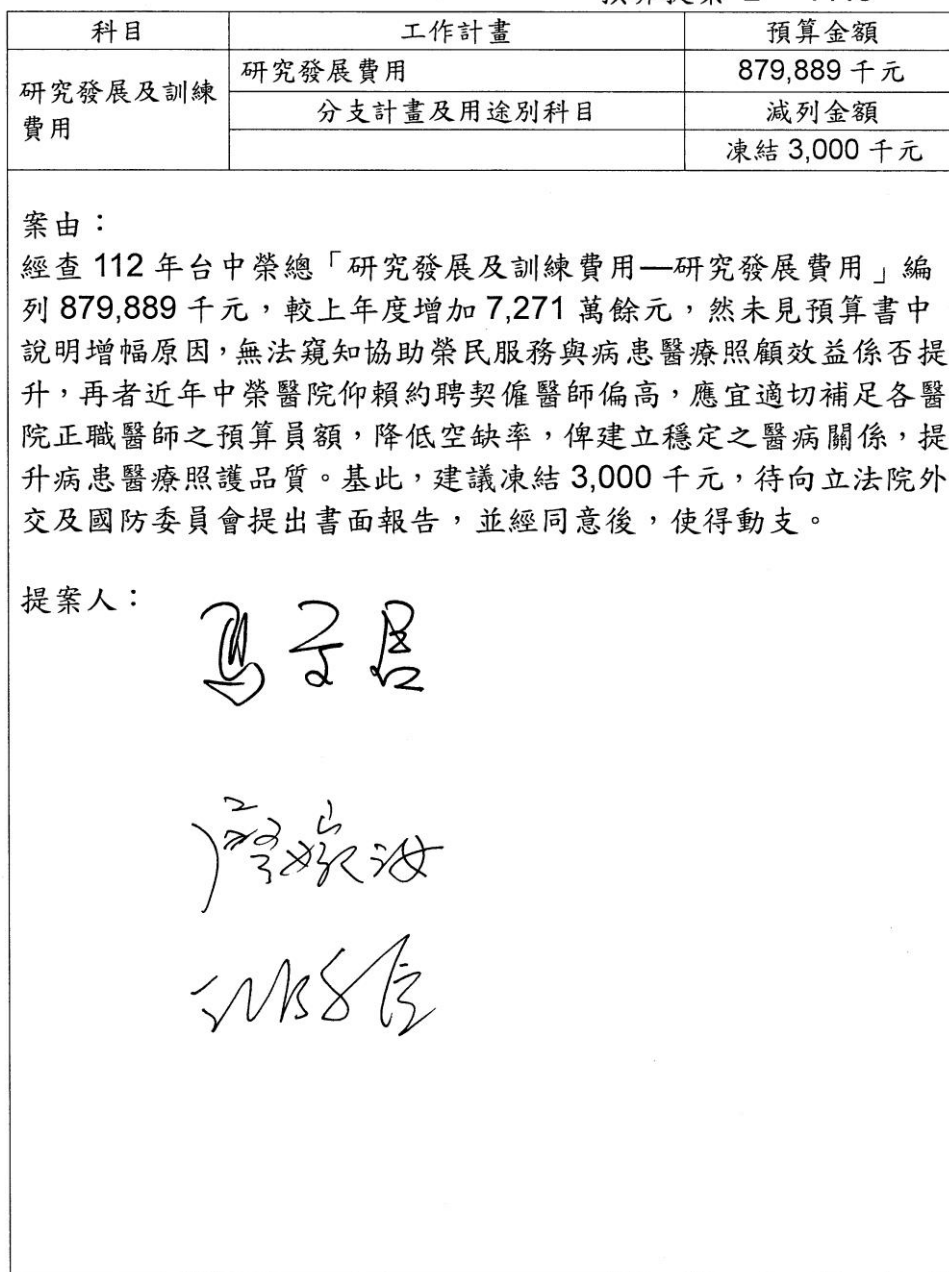 科目 工作計畫 預算金額
研究發展及訓練費用 研究發展費用 879,889 千元
分支計畫及用途別科目 減列金額
凍結 3,000 千元
案由：
經查 112 年台中榮總「研究發展及訓練費用—研究發展費用」編
列 879,889 千元，較上年度增加 7,271 萬餘元，然未見預算書中
說明增幅原因，無法窺知協助榮民服務與病患醫療照顧效益係否提
升，再者近年中榮醫院仰賴約聘契僱醫師偏高，應宜適切補足各醫
院正職醫師之預算員額，降低空缺率，俾建立穩定之醫病關係，提
升病患醫療照護品質。基此，建議凍結 3,000 千元，待向立法院外
交及國防委員會提出書面報告，並經同意後，使得動支。
提案人：
馬文君